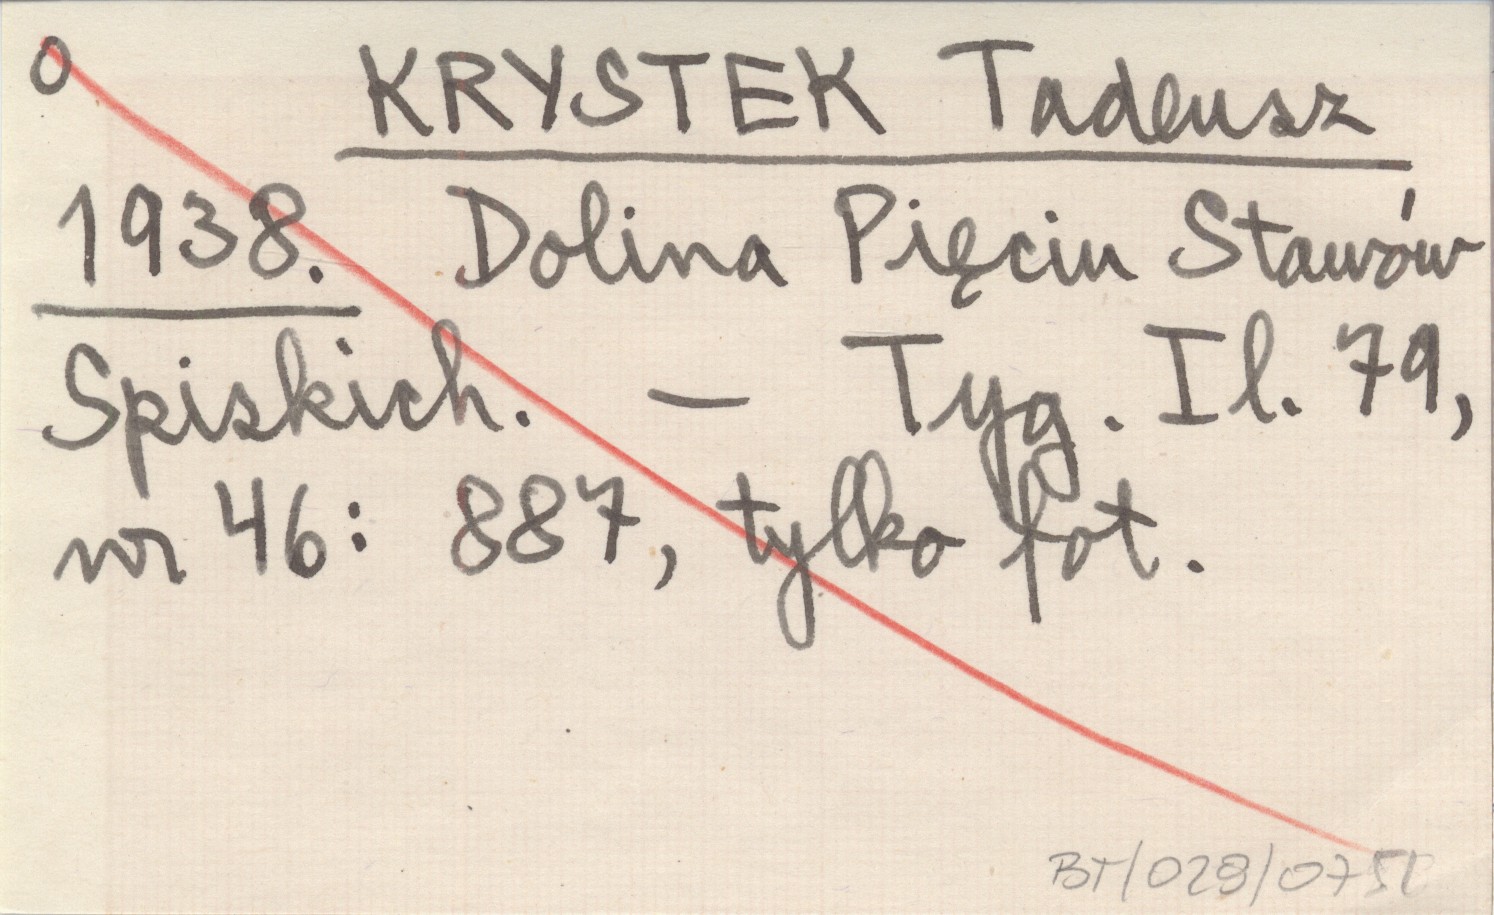 O KRYSTEK Tadeusz
1938. Dolina Pięciu Stawów
Spiskich. — Tyg. Il. 79,
nr 46: 887, tylko fot.